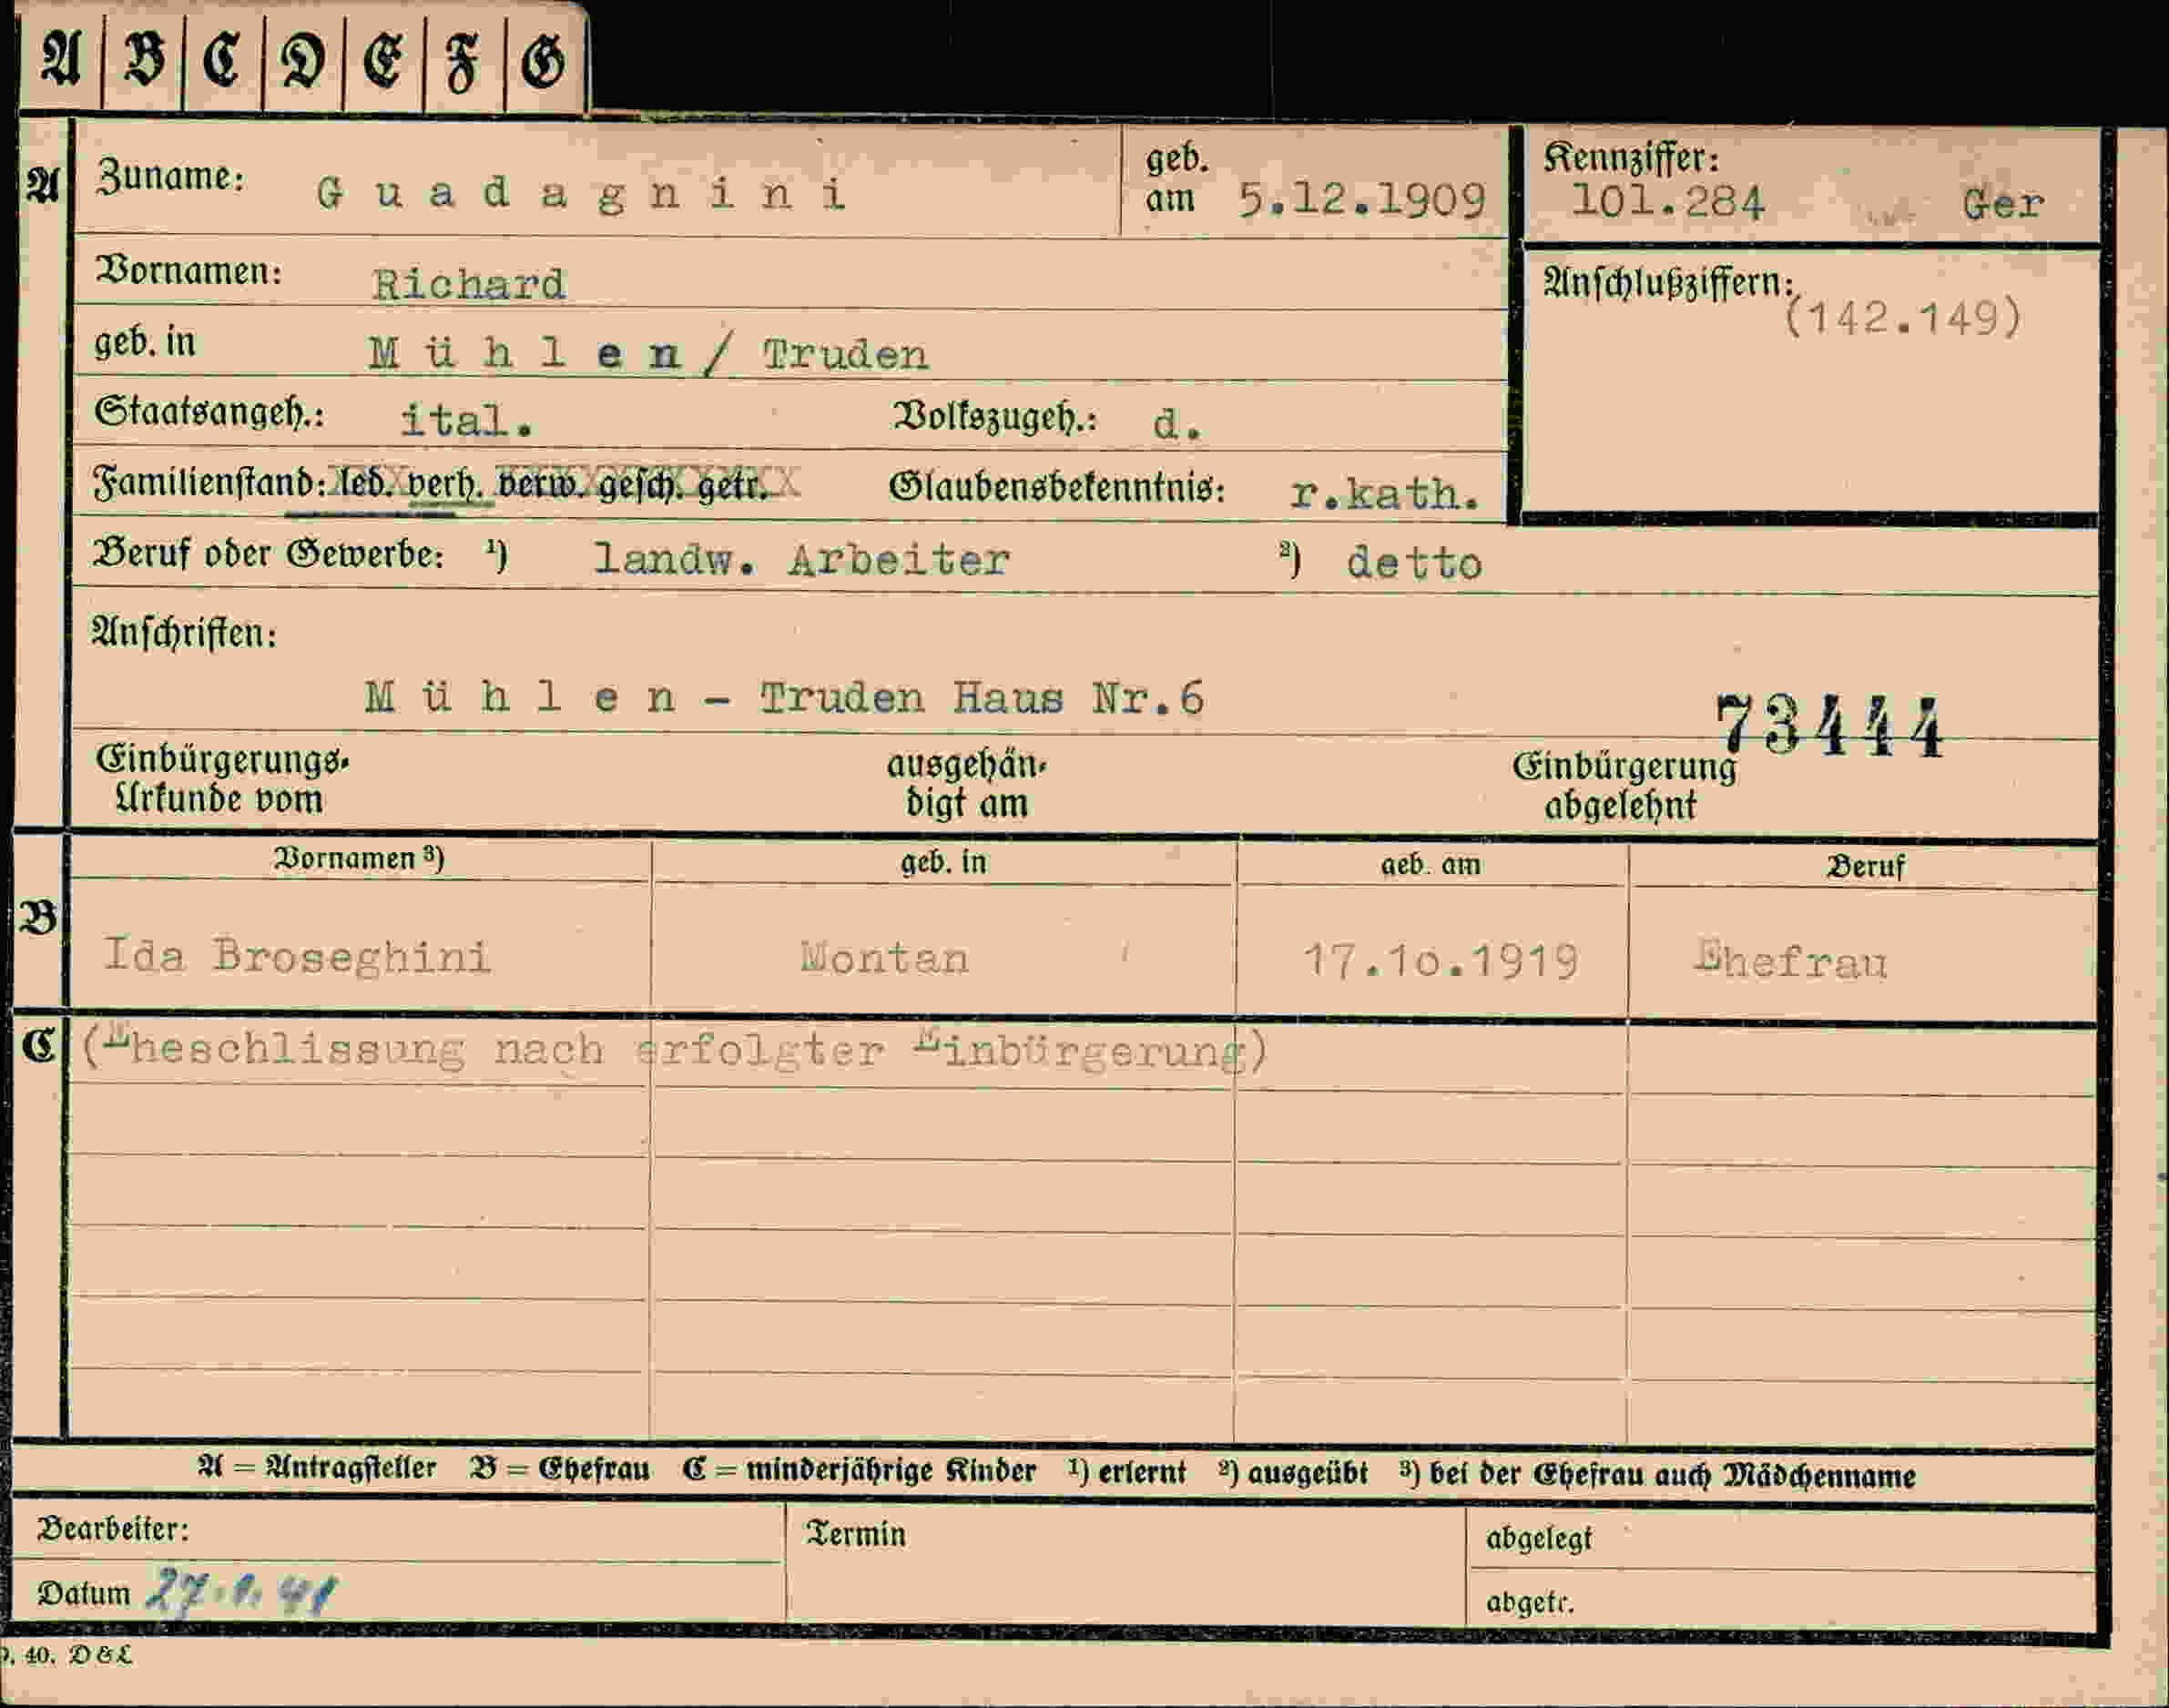 A B C D E F G
A Zuname: Guadagnini geb. am 5.12.1909 Kennziffer: 101.284 Ger
Vornamen: Richard Anschlußziffern: (142.149)
geb. in Mühlen/ Truden
Staatsangeh.: ital. Volkszugeh.: d.
Familienstand: led. verh. verw. gesch. getr. Glaubensbekenntnis: r.kath.
Beruf oder Gewerbe: ¹) landw. Arbeiter ²) detto
Anschriften:
Mühlen - Truden Haus Nr.6
73444
Einbürgerungs-Urkunde vom ausgehändigt am Einbürgerung abgelehnt
Vornamen ³) geb. in geb. am Beruf
B Ida Broseghini Montan 17.10.1919 Ehefrau
C (Eheschlissung nach erfolgter Einbürgerung)
A = Antragsteller B = Ehefrau C = minderjährige Kinder ¹) erlernt ²) ausgeübt ³) bei der Ehefrau auch Mädchenname
Bearbeiter: Termin abgelegt
Datum 27.1.41 abgetr.
40. D & L